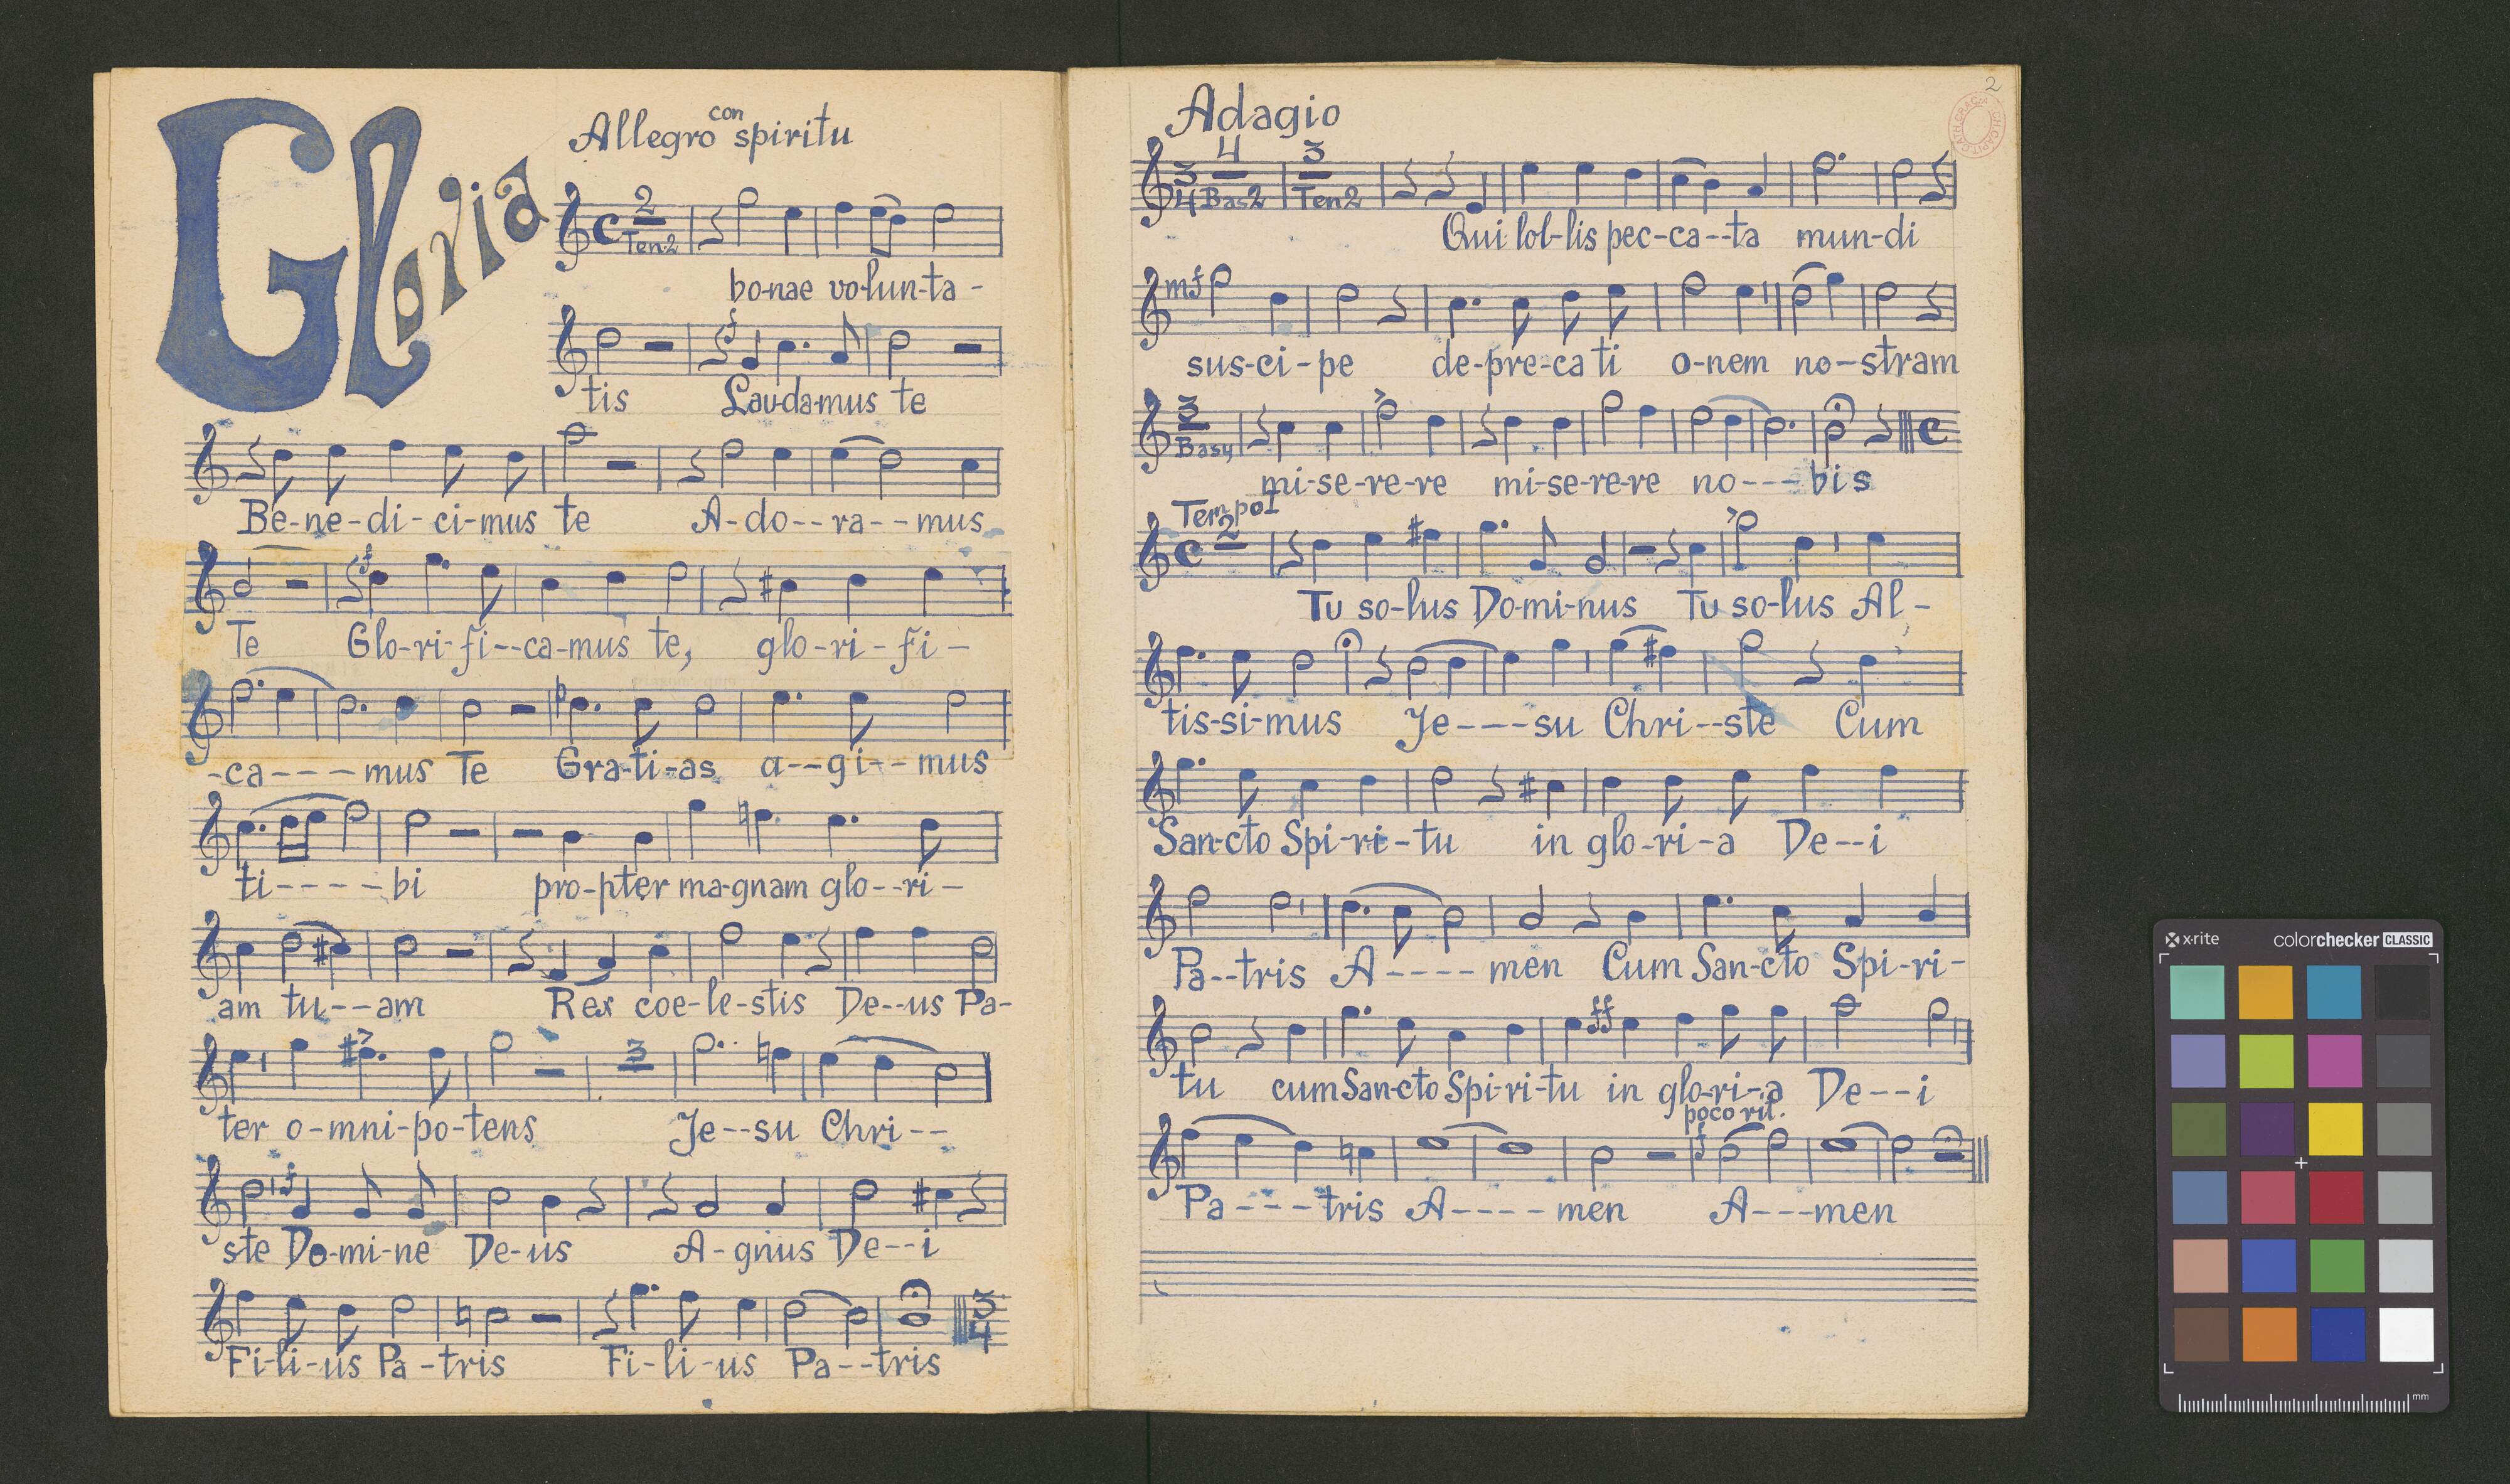 Gloria
Allegro con spiritu
2
Ten.2
bo-nae vo-lun-ta-
f
tis Lau-da-mus te
Be-ne-di-ci-mus te A-do--ra--mus
f
Te Glo-ri-fi--ca-mus te, glo-ri-fi-
-ca----mus Te Gra-ti-as a--gi--mus
ti-----bi pro-pter ma-gnam glo--ri-
am tu--am Rex coe-le-stis De--us Pa-
3
ter o-mni-po-tens Je--su Chri--
f
ste Do-mi-ne De-us A-gnus De--i
3
4
Fi-li-us Pa-tris Fi-li-us Pa--tris
2
Adagio
3 4 3
4 Bas2 Ten2
Qui lol-lis pec-ca--ta mun-di
mf
sus-ci-pe de-pre-ca ti o-nem no-stram
3
Basy
mi-se-re-re mi-se-re-re no---bis
Tempo I
2
Tu so-lus Do-mi-nus Tu so-lus Al-
tis-si-mus Je---su Chri--ste Cum
San-cto Spi-ri-tu in glo-ri-a De--i
Pa--tris A----men Cum San-cto Spi-ri-
ff
tu cum San-cto Spi-ri-tu in glo-ri-a De--i
poco rit.
f
Pa---tris A----men A---men
x-rite colorchecker CLASSIC
mm